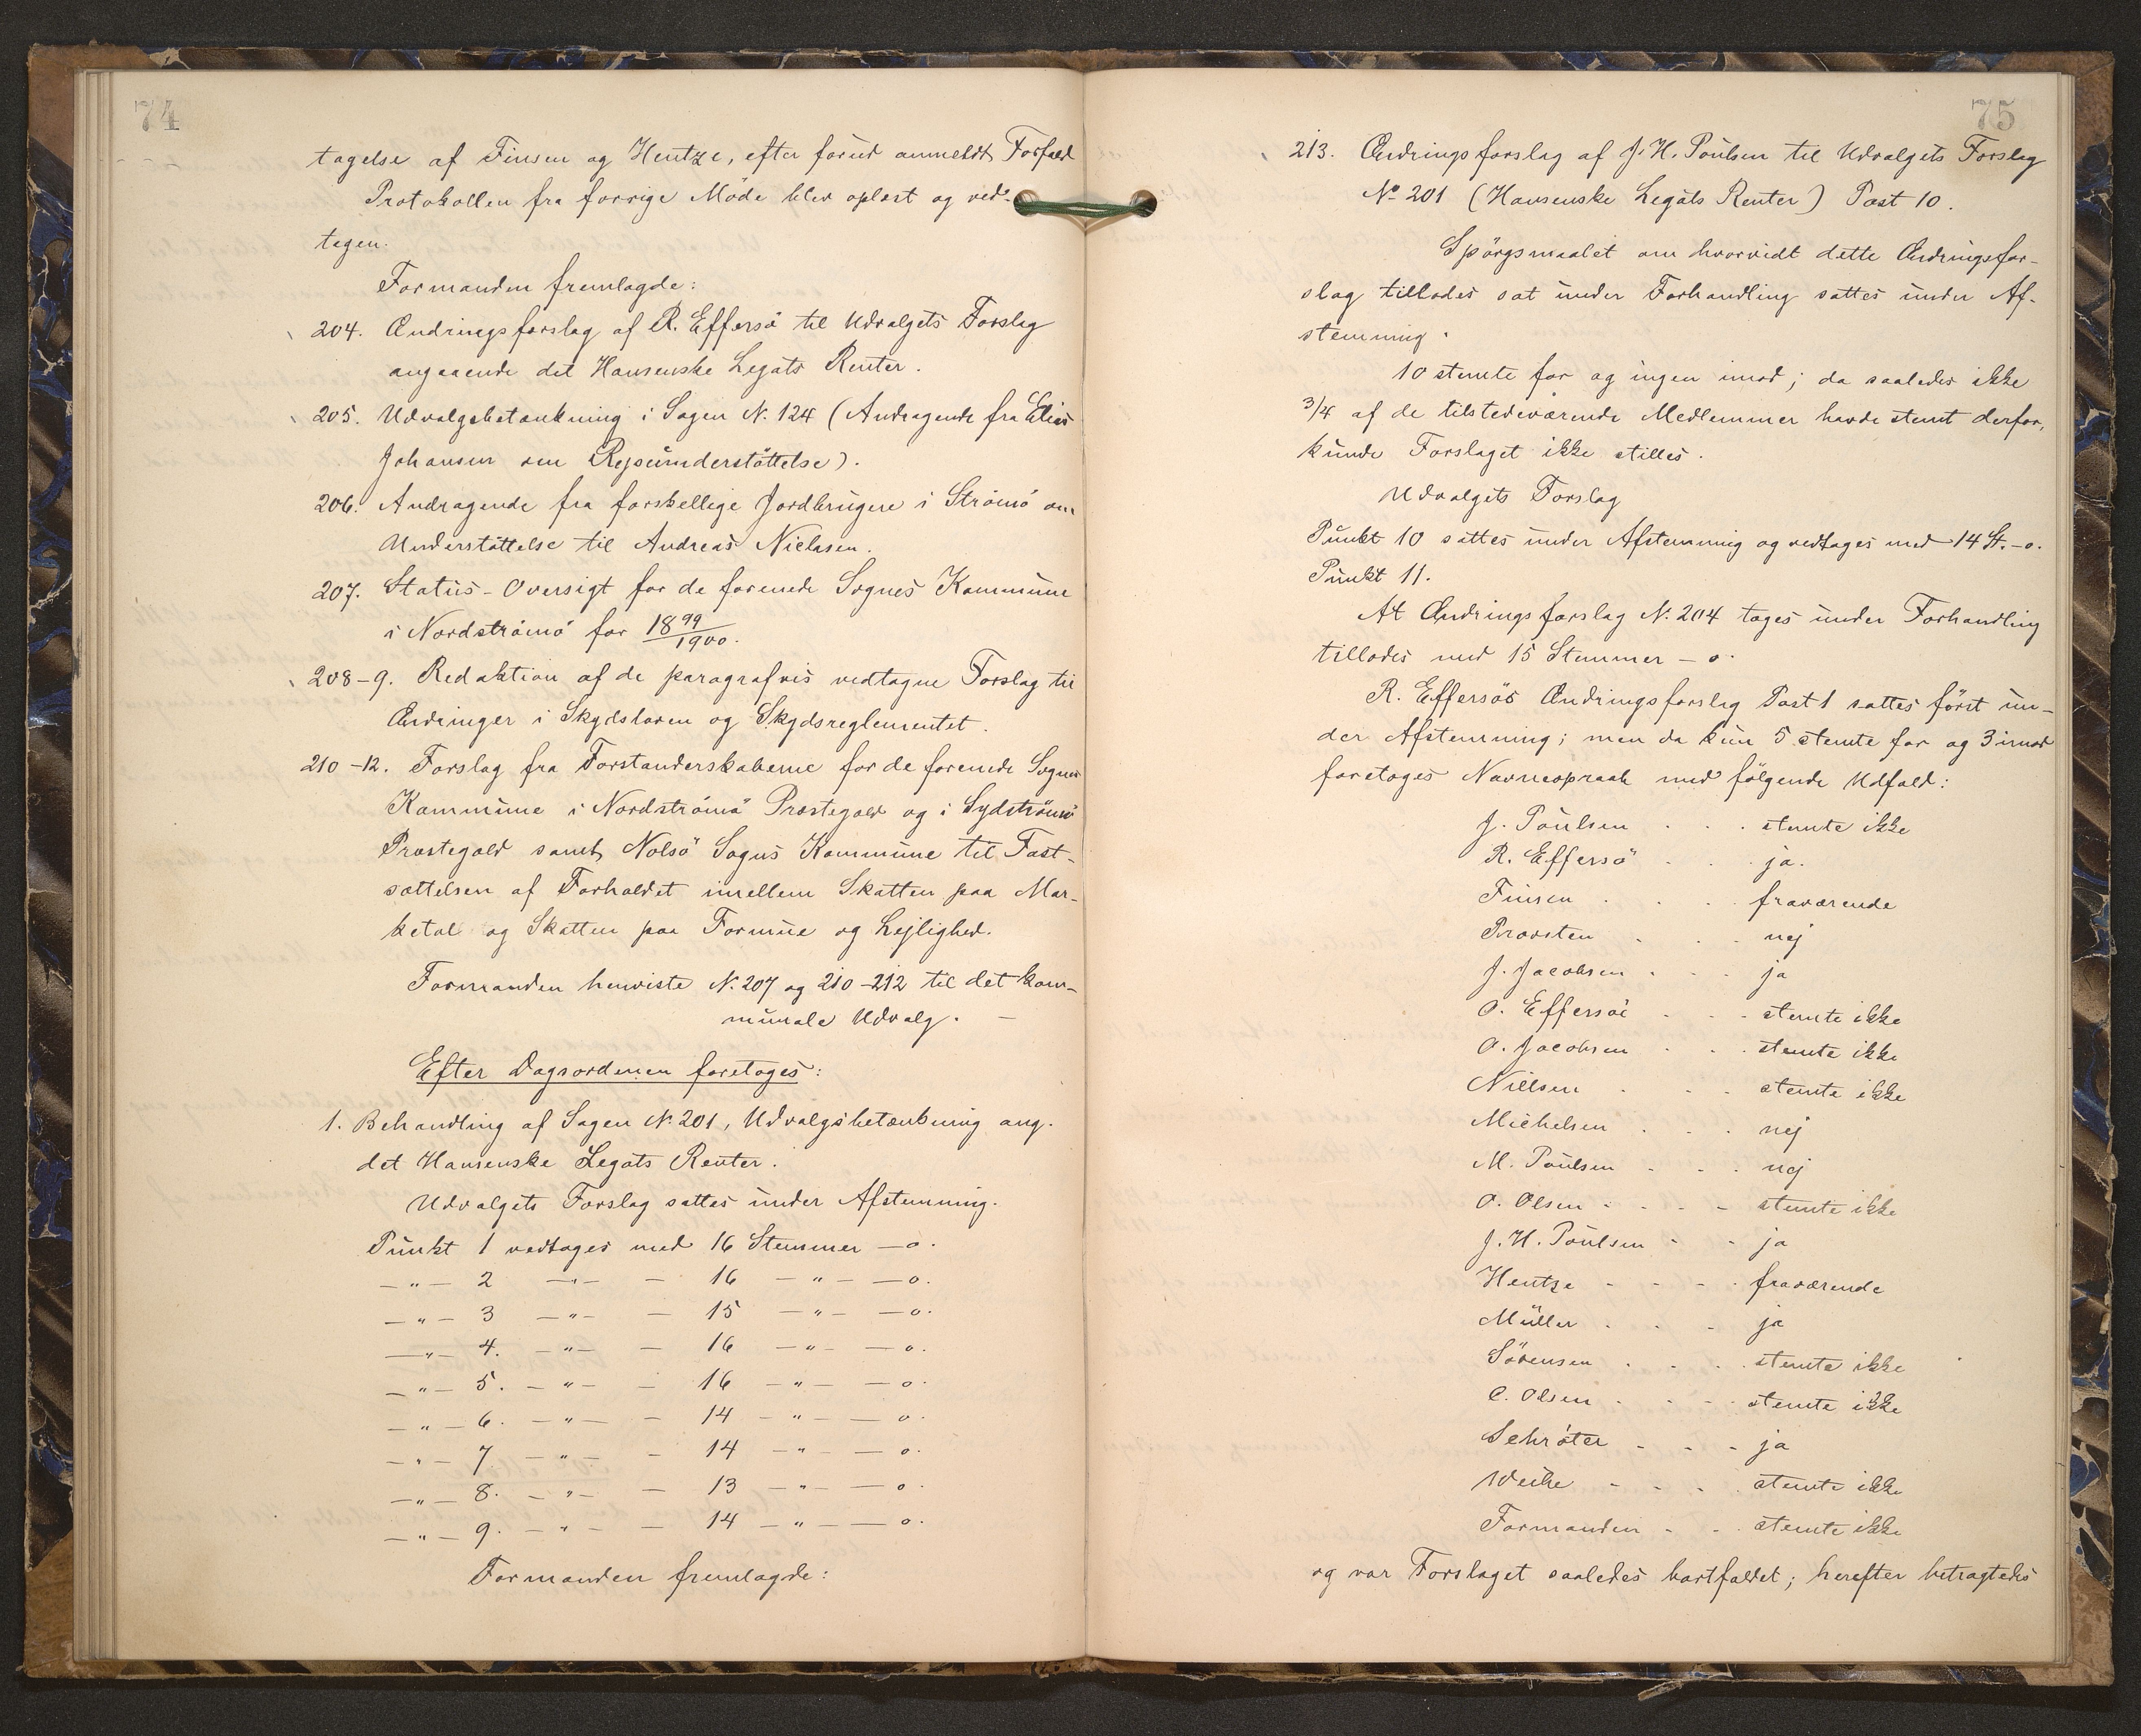 74
tagelse af Finsen og Hentze, efter forud anmeldt Forfald
Protokollen fra forrige Möde blev oplæst og ved-
tagen.
Formanden fremlagde:
204. Ændringsforslag af R. Effersö til Udvalgets Forslag
angaaende det Hansenske Legats Renter.
205. Udvalgsbetænkning i Sagen N. 124 (Andragende fra Elias
Johansen om Rejseunderstöttelse).
206. Andragende fra forskellige Jordbrugere i Strömö om
Understöttelse til Andreas Nielsen.
207. Status-Oversigt for de forenede Sognes Kommune
i Nordströmö for 1899/1900.
208-9. Redaktion af de paragrafvis vedtagne Forslag til
Ændringer i Skydsloven og Skydsreglementet.
210-12. Forslag fra Forstanderskaberne for de forenede Sognes
Kommune i Nordströmö Præstegæld og i Sydströmö
Præstegæld samt Nolsö Sogns Kommune til Fast-
sættelsen af Forholdet imellem Skatten paa Mar-
ketal og Skatten paa Formue og Lejlighed.
Formanden henviste N. 207 og 210-212 til det kom-
munale Udvalg. —
Efter Dagsordenen foretages:
1. Behandling af Sagen N. 201, Udvalgsbetænkning ang.
det Hansenske Legats Renter.
Udvalgets Forslag sattes under Afstemning.
Punkt 1 vedtages med 16 Stemmer — o.
—"— 2 —"— — 16 —"— — o.
—"— 3 —"— — 15 —"— — o.
—"— 4. —"— — 16 —"— — o.
—"— 5. —"— — 16 —"— — o.
—"— 6. —"— — 14 —"— — o.
—"— 7. —"— — 14 —"— — o.
—"— 8. —"— — 13 —"— — o.
—"— 9. —"— — 14 —"— — o.
Formanden fremlagde:
75
213. Ændringsforslag af J. H. Poulsen til Udvalgets Forslag
No 201 (Hansenske Legats Renter) Post 10.
Spörgsmaalet om hvorvidt dette Ændringsfor-
slag tillades sat under Forhandling sattes under Af-
stemning.
10 stemte for og ingen imod; da saaledes ikke
3/4 af de tilstedeværende Medlemmer havde stemt derfor,
kunde Forslaget ikke stilles.
Udvalgets Forslag
Punkt 10 sattes under Afstemning og vedtages med 14 St. - o.
Punkt 11.
At Ændringsforslag N. 204 tages under Forhandling
tillodes med 15 Stemmer — o.
R. Effersös Ændringsforslag Post 1 sattes först un-
der Afstemning; men da kun 5 stemte for og 3 imod
foretoges Navneopraab med fölgende Udfald:
J. Poulsen . . . stemte ikke
R. Effersö . . . ja.
Finsen . . . fraværende
Provsten . . . nej
J. Jacobsen . . . ja
O. Effersöe . . . stemte ikke
O. Jacobsen . . . stemte ikke
Nielsen . . . stemte ikke
Michelsen . . . nej
M. Poulsen . . . nej
O. Olsen . . . . stemte ikke
J. H. Poulsen . . ja
Hentze . . . . fraværende
Müller . . . ja
Sörensen . . . stemte ikke
C. Olsen . . . stemte ikke
Schröter . . . ja
Weihe . . . stemte ikke
Formanden . . stemte ikke
og var Forslaget saaledes bortfaldet; herefter betragtedes